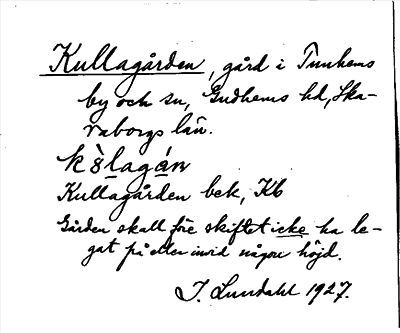 Kullagården, gård i Tunhems
by och sn, Gudhems hd, Ska-
raborgs län.
kὸlagán
Kullagården bek, Kb
Gården skall före skiftet icke ha le-
gat på eller invid någon höjd.
I. Lundahl 1927.